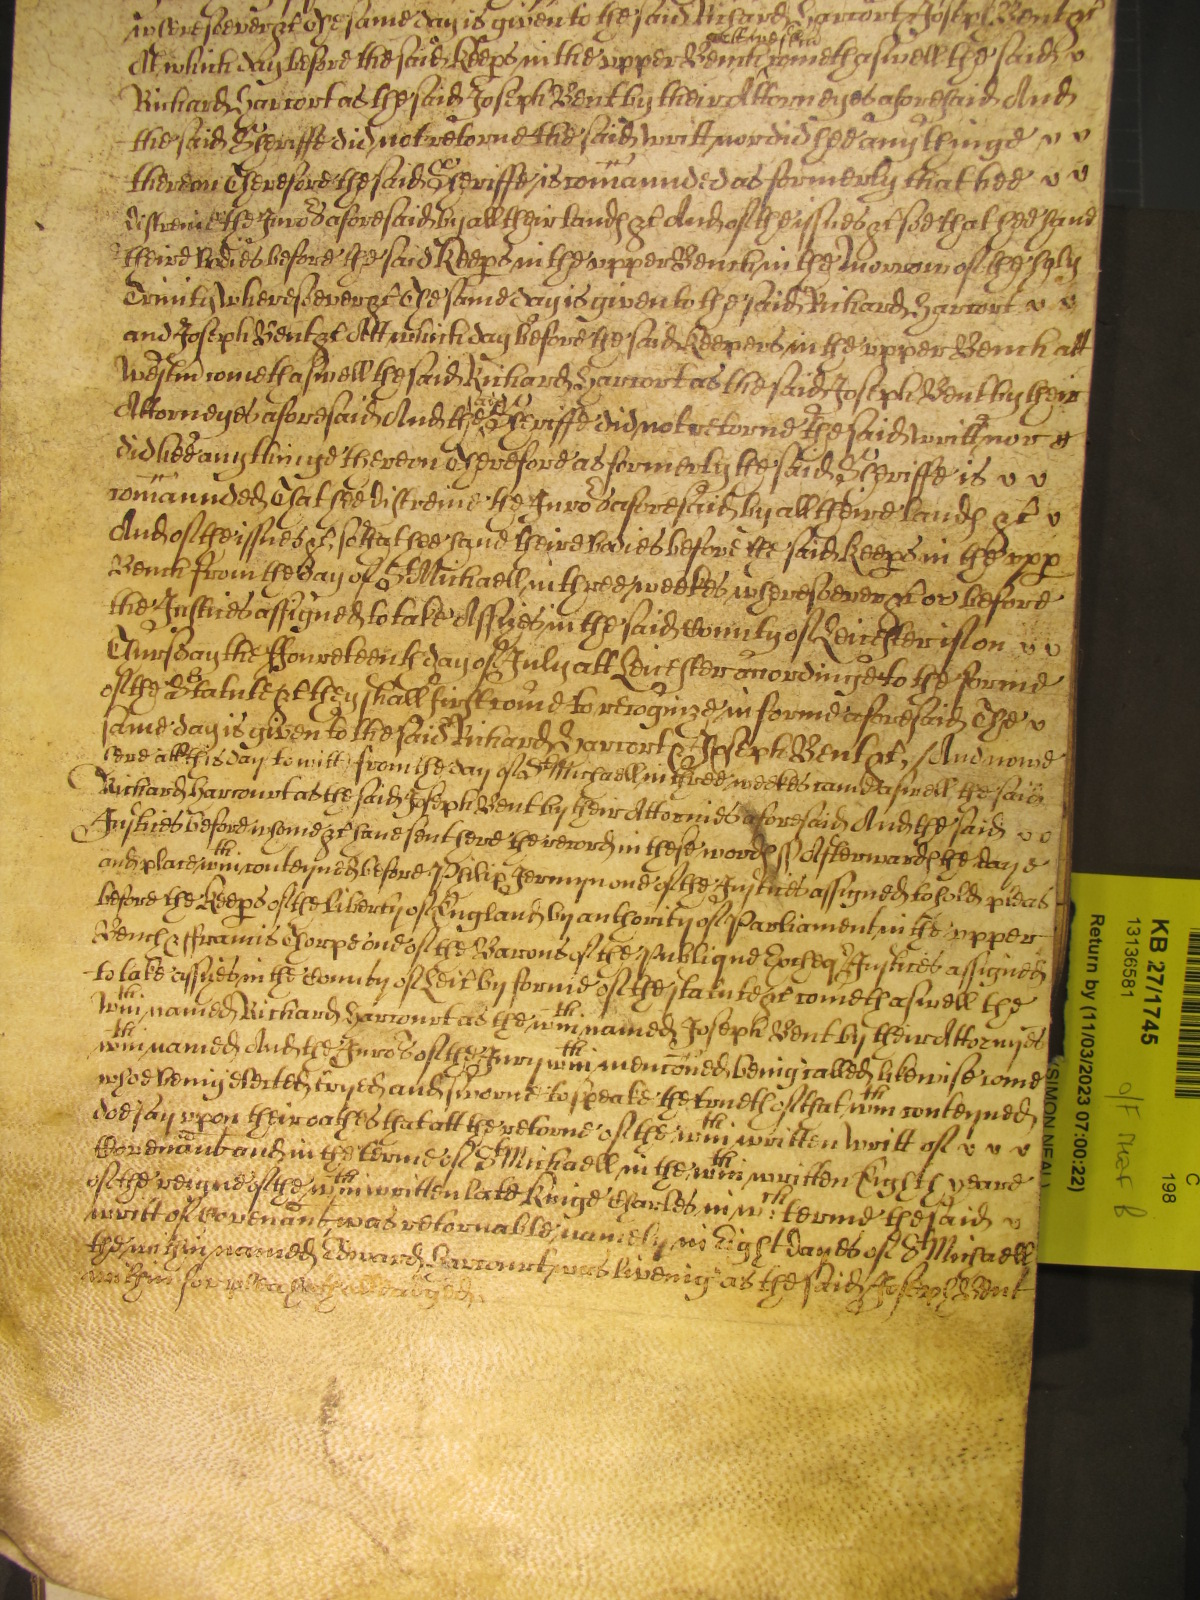 wheresoever &c The same day is given to the said Richard Harcort & Joseph Bent &c
att Westm
At which day before the said Keeps in the upper Bench cometh aswell the said
Richard Harcort as the said Joseph Bent by their Attorneyes aforesaid And
the said Sheriffe did not retorne the said writt nor did hee any thinge
thereon Therefore the said Sheriffe is comaunded as formerly that hee
distreine the Juros aforesaid by all their lands &c And of the issues &c soe that hee have
theire bodies before the said Keeps in the upper Bench in the morrow of the holy
Trinity wheresoever &c The same day is given to the said Richard Harcort
and Joseph Bent &c Att which day before the said Keepers in the upper Bench att
Westm cometh aswell the said Richard Harcort as the said Joseph Bent by their
Attorneyes aforesaid And the said Sheriffe did not retorne the said writt nor
did hee any thinge thereon Therefore as formerly the said Sheriffe is
comaunded That hee distreine the Juros aforesaid by all theire lands &c
And of the issues &c, so that hee have theire bodies before the said Keeps in the upp
Bench from the day of St Michaell in three weekes wheresoever &c or before
the Justices assigned to take Assizes in the said County of Leicester if on
Thursday the ffoureteenth day of July att Leicester accordinge to the forme
of the Statute &c they shall first come to recognize in forme aforesaid The
same day is given to the said Richard Harcort & Joseph Bent &c, And nowe
here att this day to witt from the day of St Michaell in three weekes came aswell the said
Richard Harcourt as the said Joseph Bent by their Attornies aforesaid And the said
Justices before whome &c have sent here the record in these words ss Afterwards the daye
and place wthin conteyned before Philip Jermyn one of the Justices assigned to hold pleas
before the Keeps of the liberty of England by authority of Parliament in the upper
Bench & ffrancis Thorpe one of the Barons of the Publique Excheqr Justices assigned
to take assizes in the County of Leic by forme of the statute &c cometh aswell the
wthin named Richard Harcourt as the wthin named Joseph Bent by their Attornyes
wthin named And the Juros of the Jury wthin mencoed being called likewise come
whoe being elected tryed and sworne to speake the trueth of that wthin conteyned
doe say upon their oathes that att the retorne of the wthin written writt of
Covenant and in the terme of St Michaell in the wthin written Eighth yeare
of the reigne of the wthin written late Kinge Charles in wch terme the said
writt of Covenant was retornable namely in Eight dayes of St Michaell
the within named Edward Harcourt was liveing as the said Joseph Bent
within for plea hath alleadged
KB 27/1745
13136581
Return by (11/03/2023 07:00:22)
(SIMON NEAL)
C
198